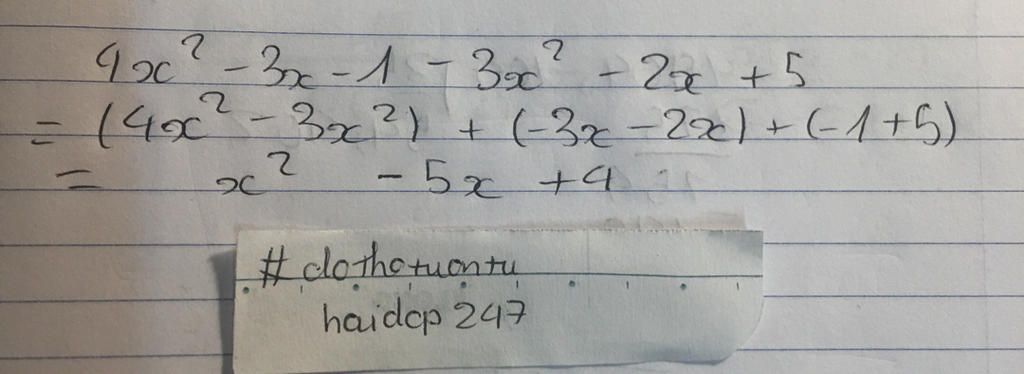 4x² - 3x - 1 - 3x² - 2x + 5
= (4x² - 3x²) + (-3x - 2x) + (-1 + 5)
= x² - 5x + 4
# dothotuontu
haidap 247